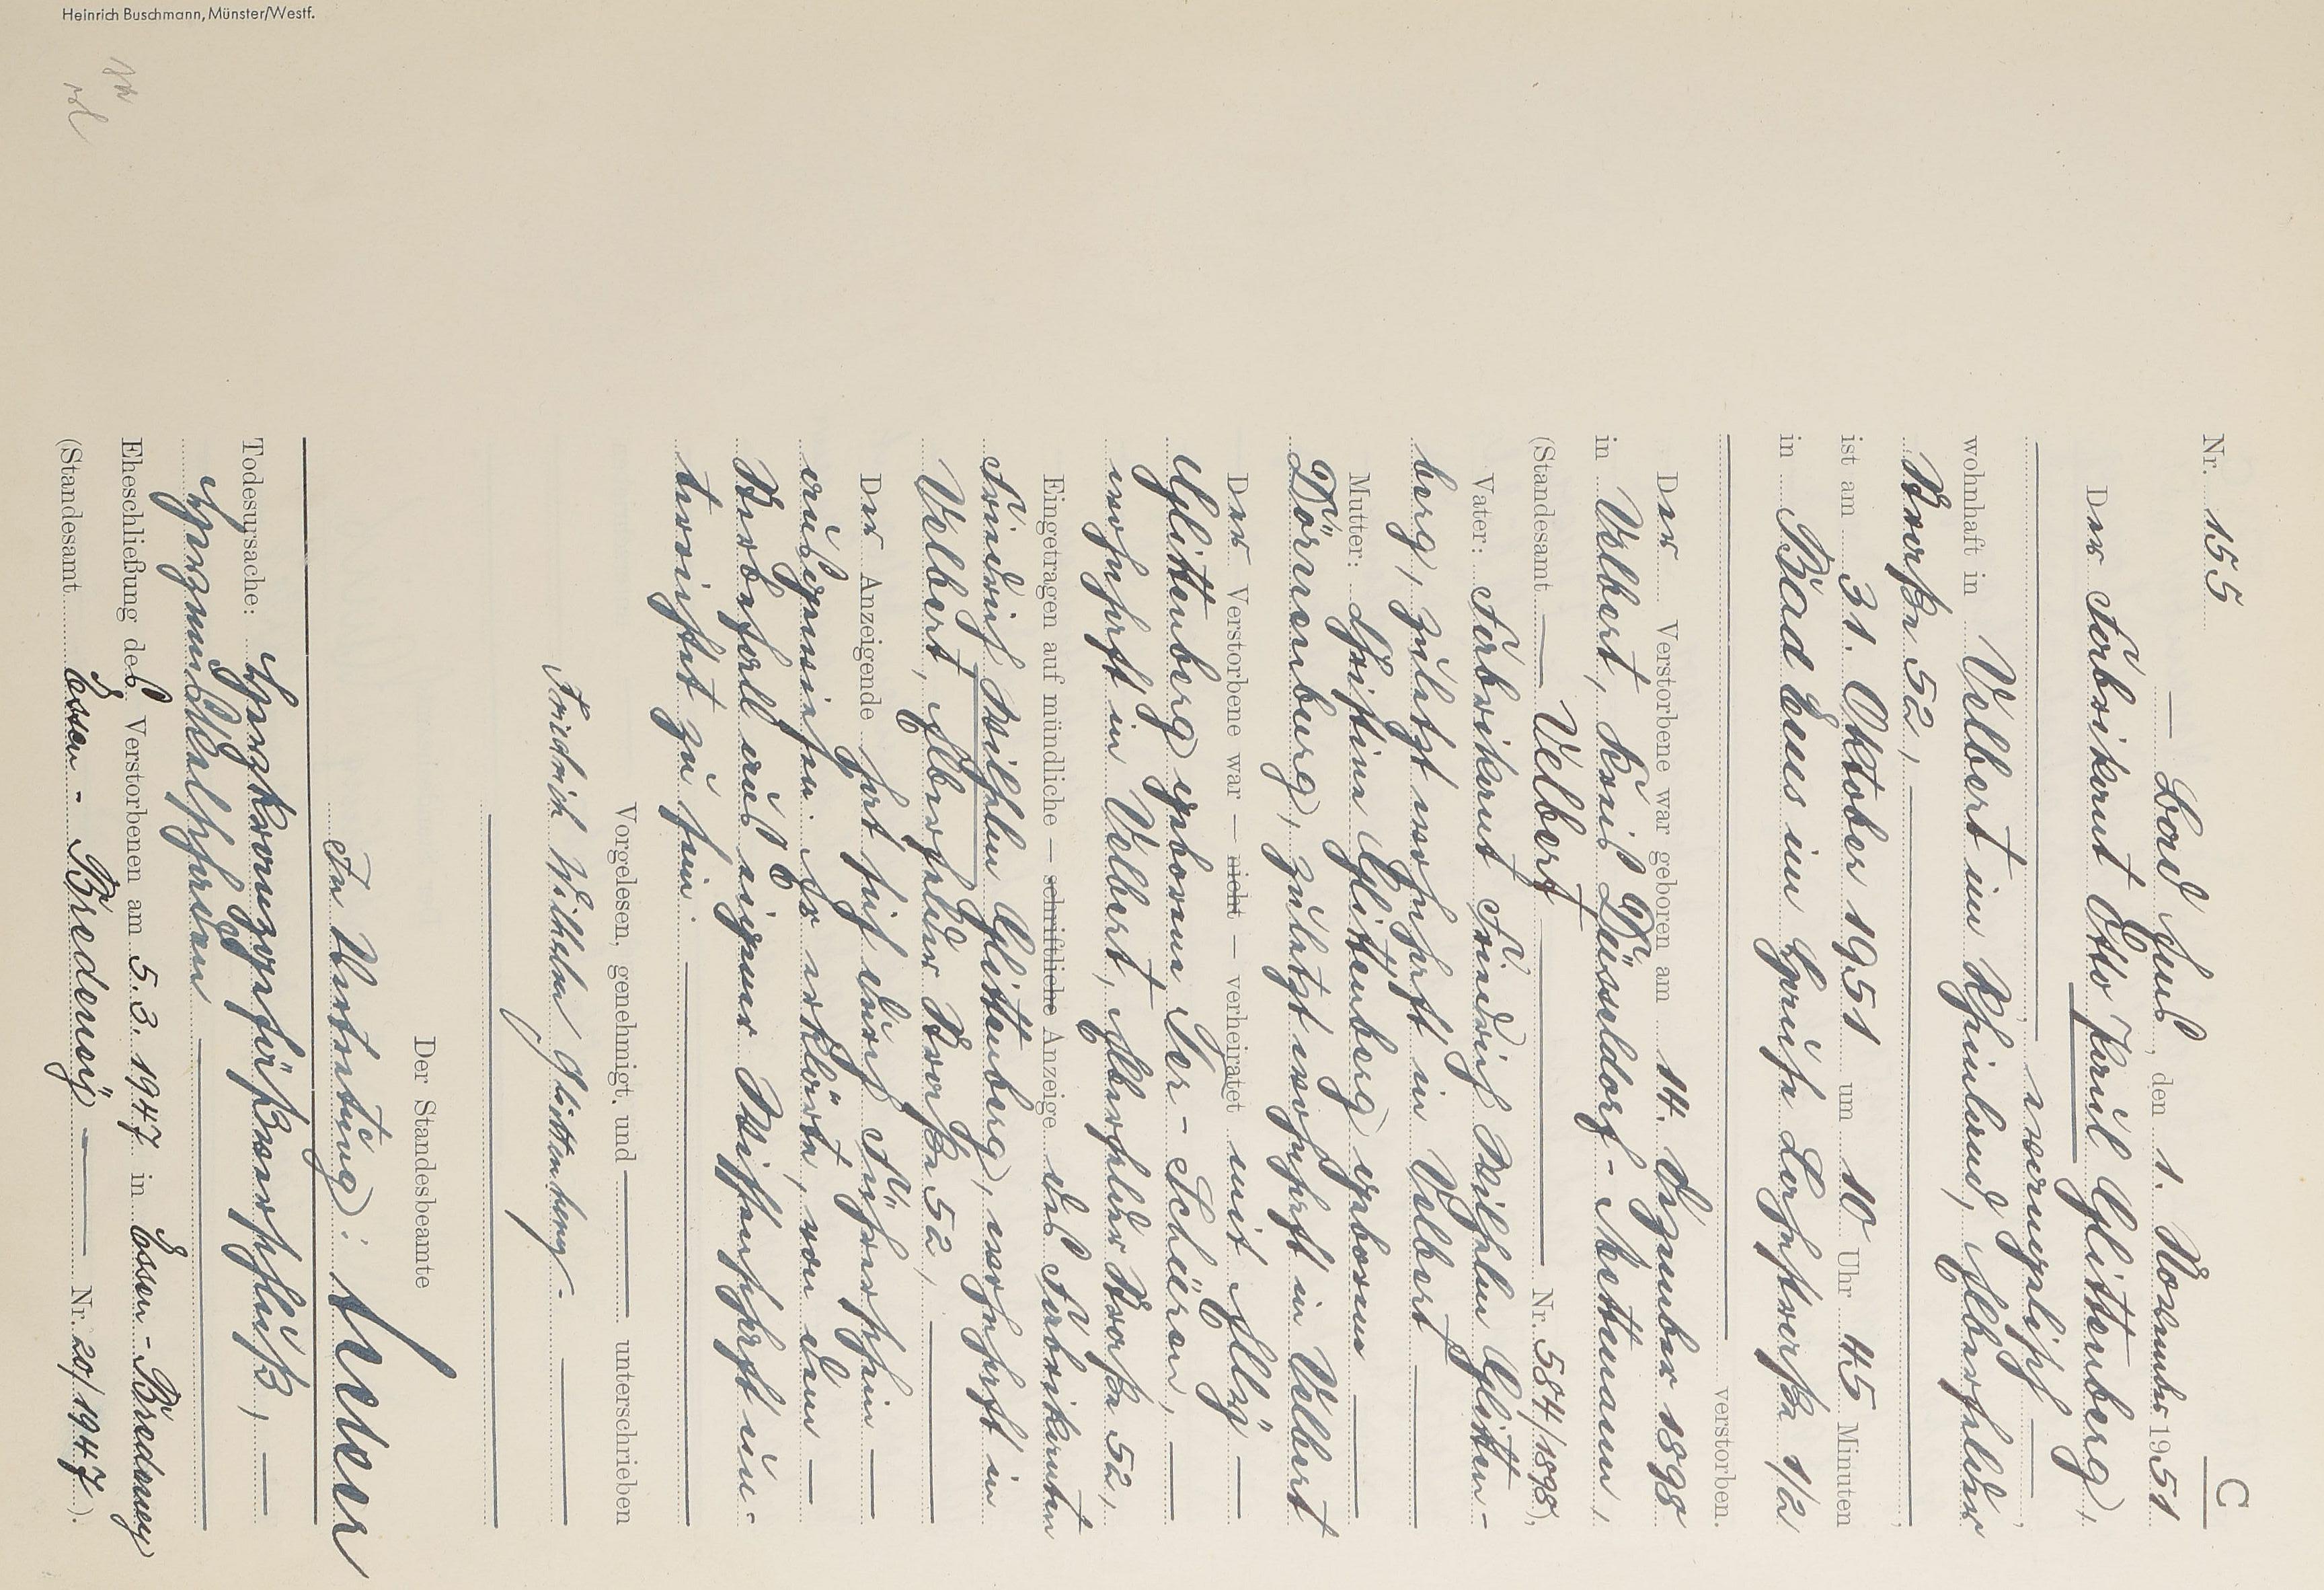 C
Nr. 155
— Bad Ems, den 1. November 1951
Der Fabrikant Otto Paul Glittenberg,
—, evangelisch —,
wohnhaft in Velbert im Rheinland,
Straße 52, —,
ist am 31. Oktober 1951 um 10 Uhr 45 Minuten
in Bad Ems im Hause Lahnstraße 1/2
— verstorben.
Der Verstorbene war geboren am 14. Dezember 1898
in Velbert, Kreis Düsseldorf-Mettmann,
(Standesamt — Velbert — Nr. 584/1898),
Vater: Fabrikant Friedrich Wilhelm Glitten-
berg, zuletzt wohnhaft in Velbert —
Mutter: Christine Glittenberg geborene —
Dörrenburg, zuletzt wohnhaft in Velbert
Der Verstorbene war — nicht — verheiratet mit Elly —
Glittenberg geborene Ter-Schüren, —
wohnhaft in Velbert, Straße 52,
Eingetragen auf mündliche — schriftliche Anzeige des Fabrikanten
Friedrich Wilhelm Glittenberg, wohnhaft in
Velbert, Straße 52, —
Der Anzeigende hat sich durch Führerschein —
ausgewiesen. Er erklärte, von dem —
Sterbefall aus eigener Wissenschaft un-
terrichtet zu sein. —
Vorgelesen, genehmigt und — unterschrieben
Friedrich Wilhelm Glittenberg. —
Der Standesbeamte
In Vertretung:
Todesursache: Herzkranzgefäßverschluß, —
Herzmuskelschaden —
Eheschließung des Verstorbenen am 5.3.1947 in Essen-Bredeney
(Standesamt Essen-Bredeney — Nr. 20/1947).
Heinrich Buschmann, Münster/Westf.